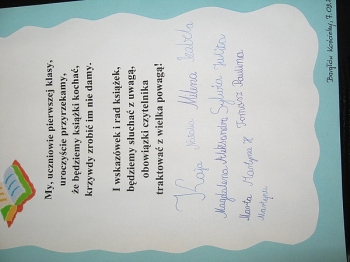 My, uczniowie pierwszej klasy,
uroczyście przyrzekamy,
że będziemy książki kochać,
krzywdy zrobić im nie damy.
I wskazówek i rad książek,
będziemy słuchać z uwagą,
obowiązki czytelnika
traktować z wielka powagą!
Kaja Natalia Milena Izabela
Magdalena Aleksandra Sylwia Julita
Marta Martyna K Tomasz Paulina
Martyna